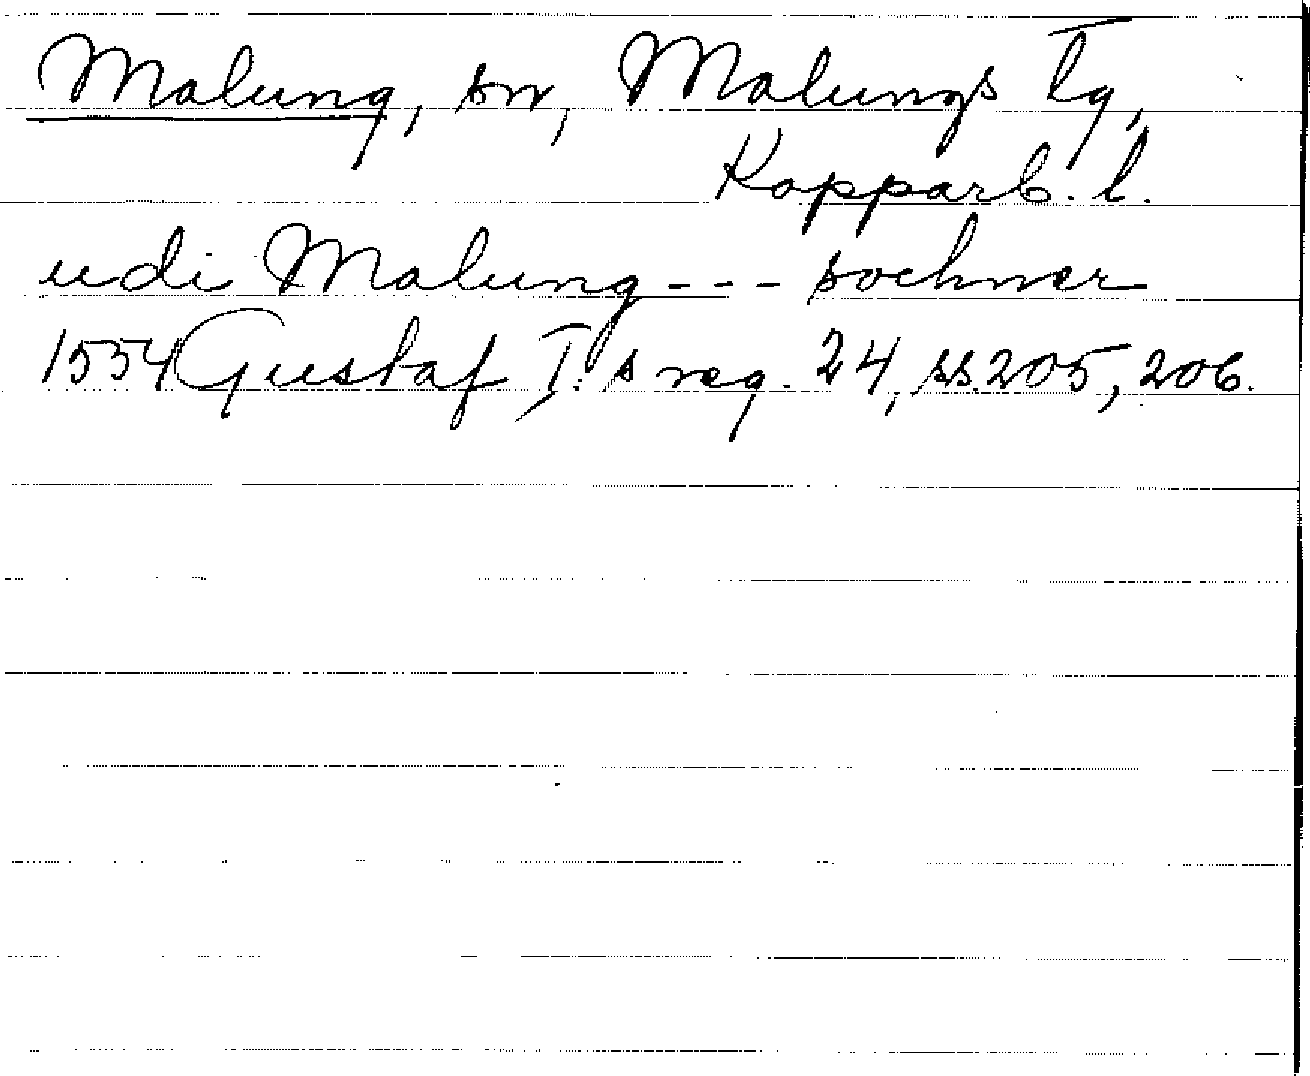 Malung, sn, Malungs tg,
Kopparb. l.
udi Malung --- sochner
1554 Gustaf I:s reg. 24, ss. 205, 206.